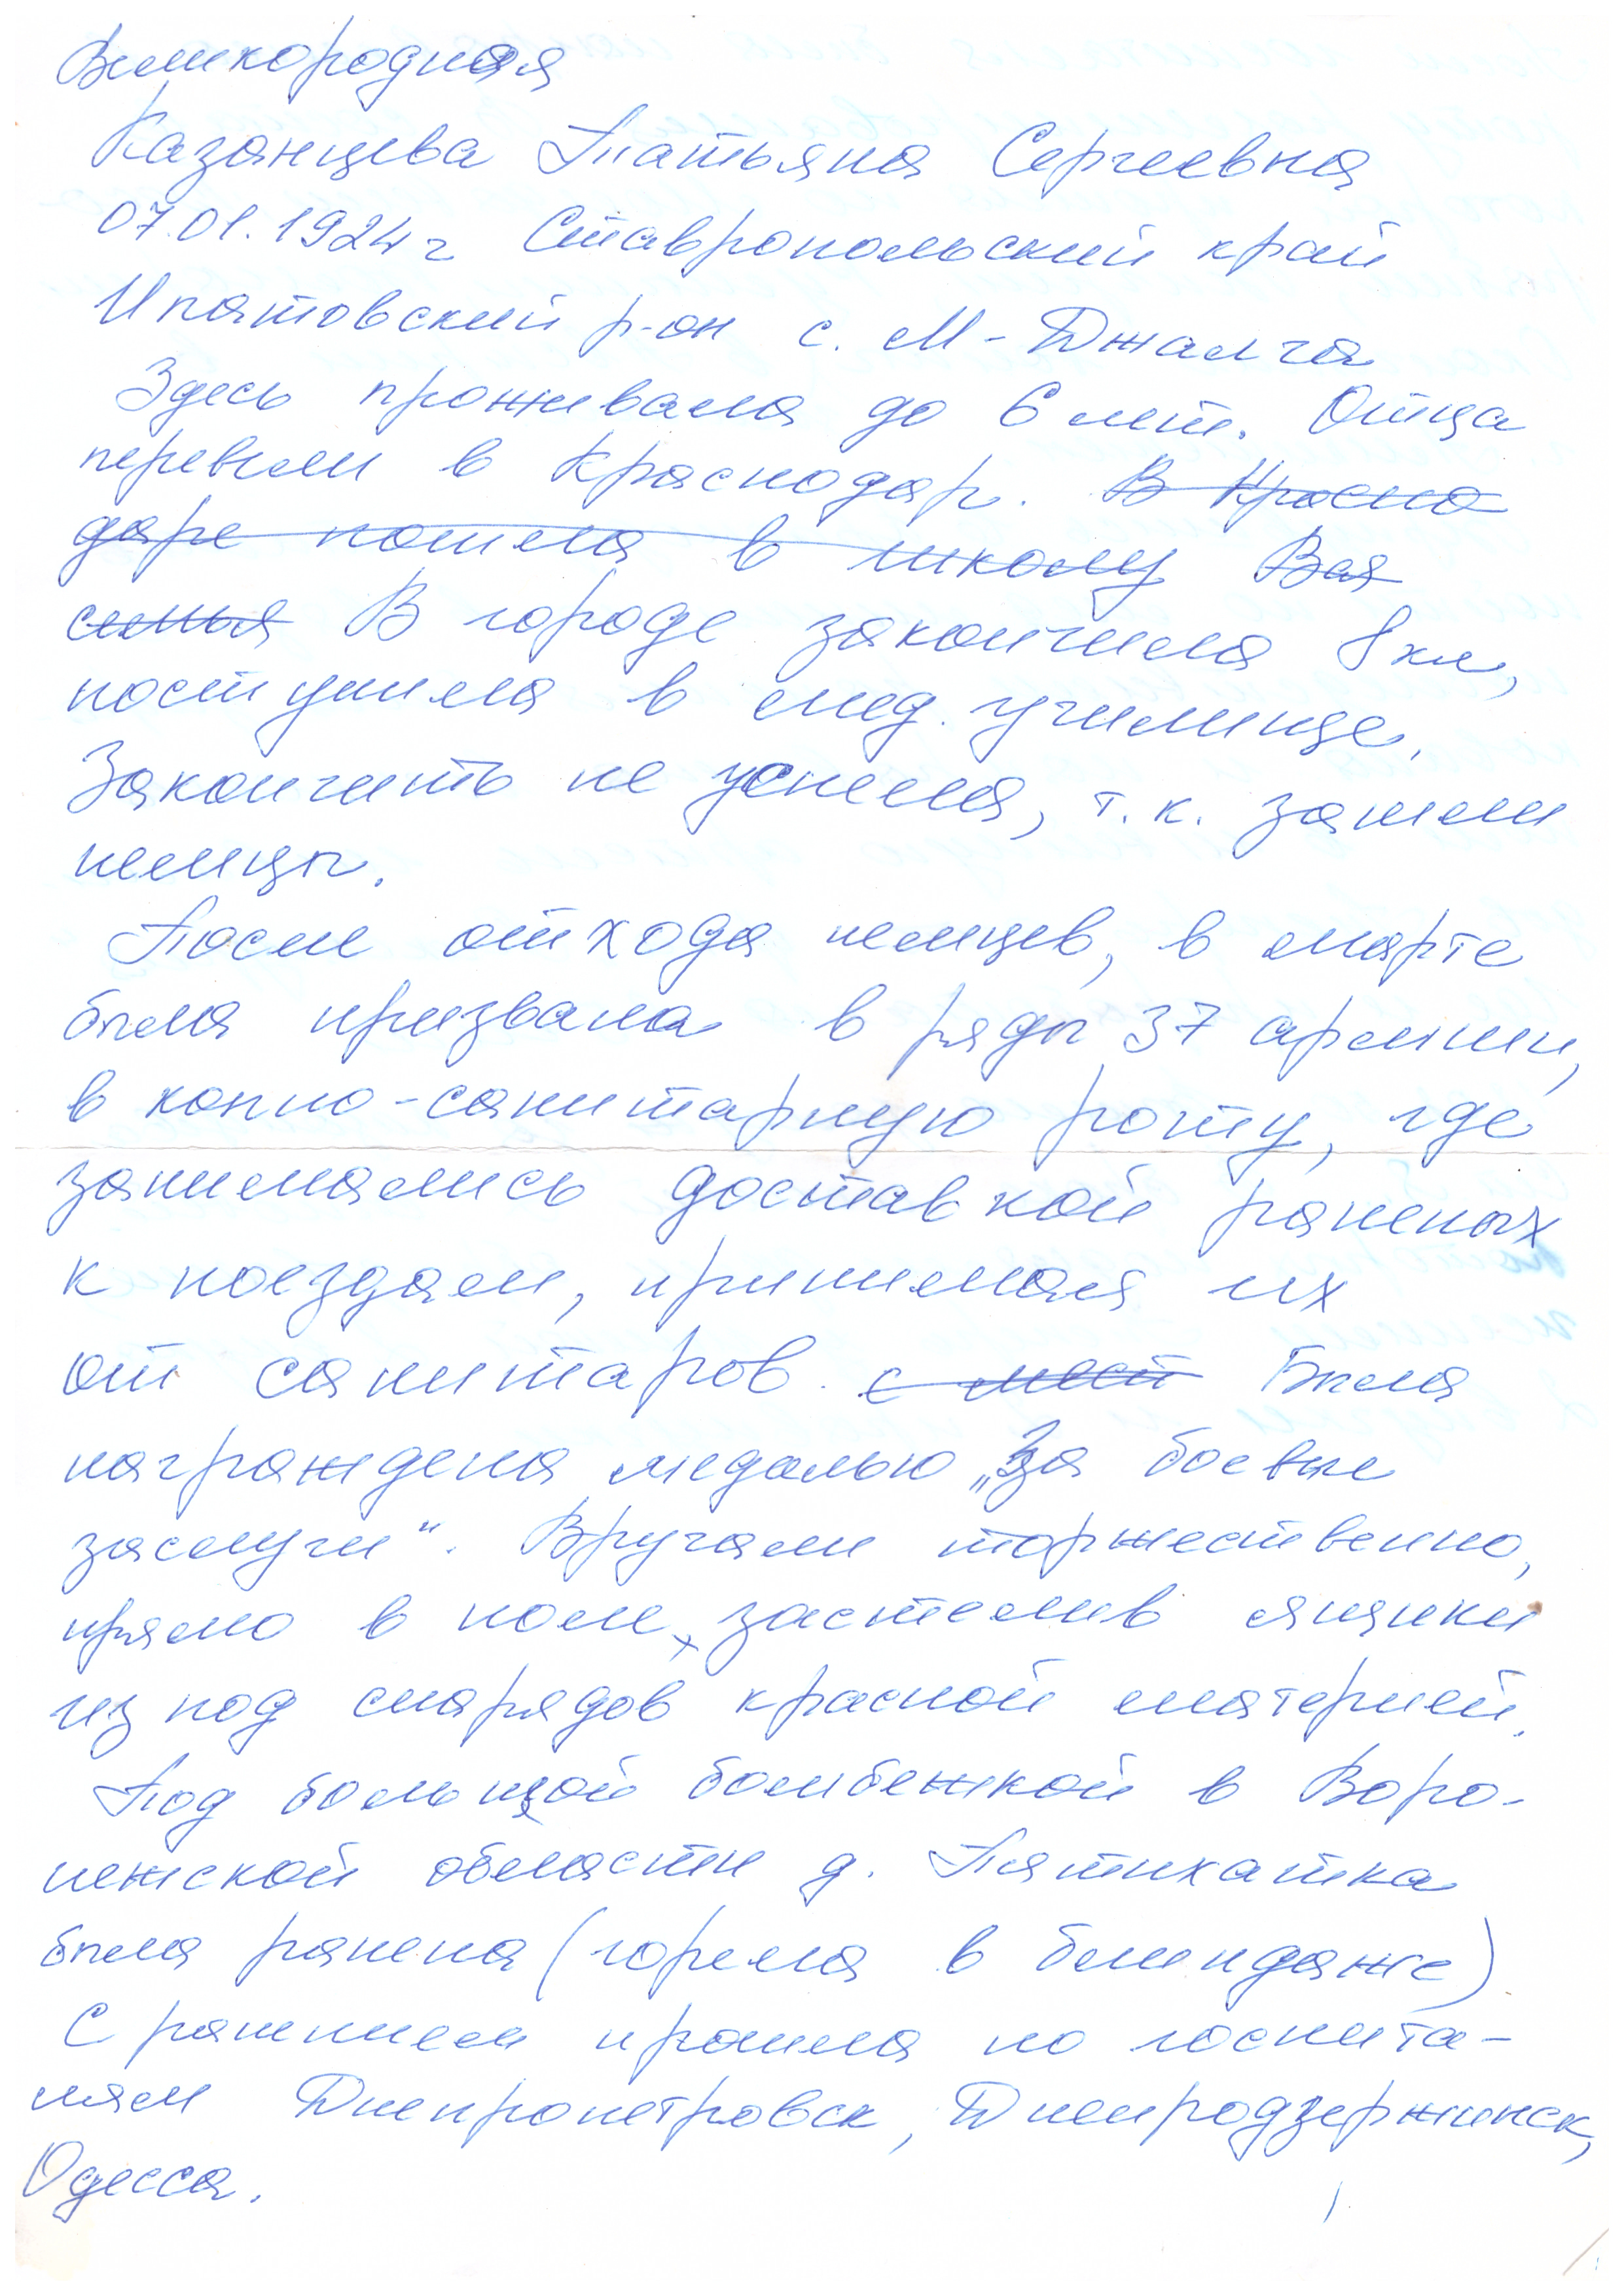 Великородная
Казанцева Татьяна Сергеевна
07.01.1924 г Ставропольский край
Ипатовский р-он с. М-Джалга
Здесь проживала до 6 лет. Отца
перевели в Краснодар. В Красно
даре пошла в школу Вся
семья В городе закончила 8 кл,
поступила в мед. училище.
Закончить не успела, т.к. зашли
немцы.
После отхода немцев, в марте
была призвана в ряды 37 армии,
в конно-санитарную роту, где
занимались доставкой раненых
к поездам, принимая их
от санитаров. с мест Была
награждена медалью „За боевые
заслуги“. Вручали торжественно,
прямо в поле, застелив ящики
из под снарядов красной материей.
Под большой бомбежкой в Воро-
нежской области д. Пятихатка
была ранена (горела в блиндаже)
С ранением прошла по госпита-
лям Днепропетровск, Днепродзержинск,
Одесса.